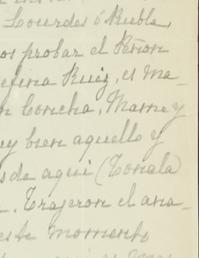 Lourdes ó Ruble
os probar el Señor
efina Ruiz, es Ma-
n Concha, Mame y
uy bien aquello y
sde aqui (Tonala
. Trajeron el ana-
este momento